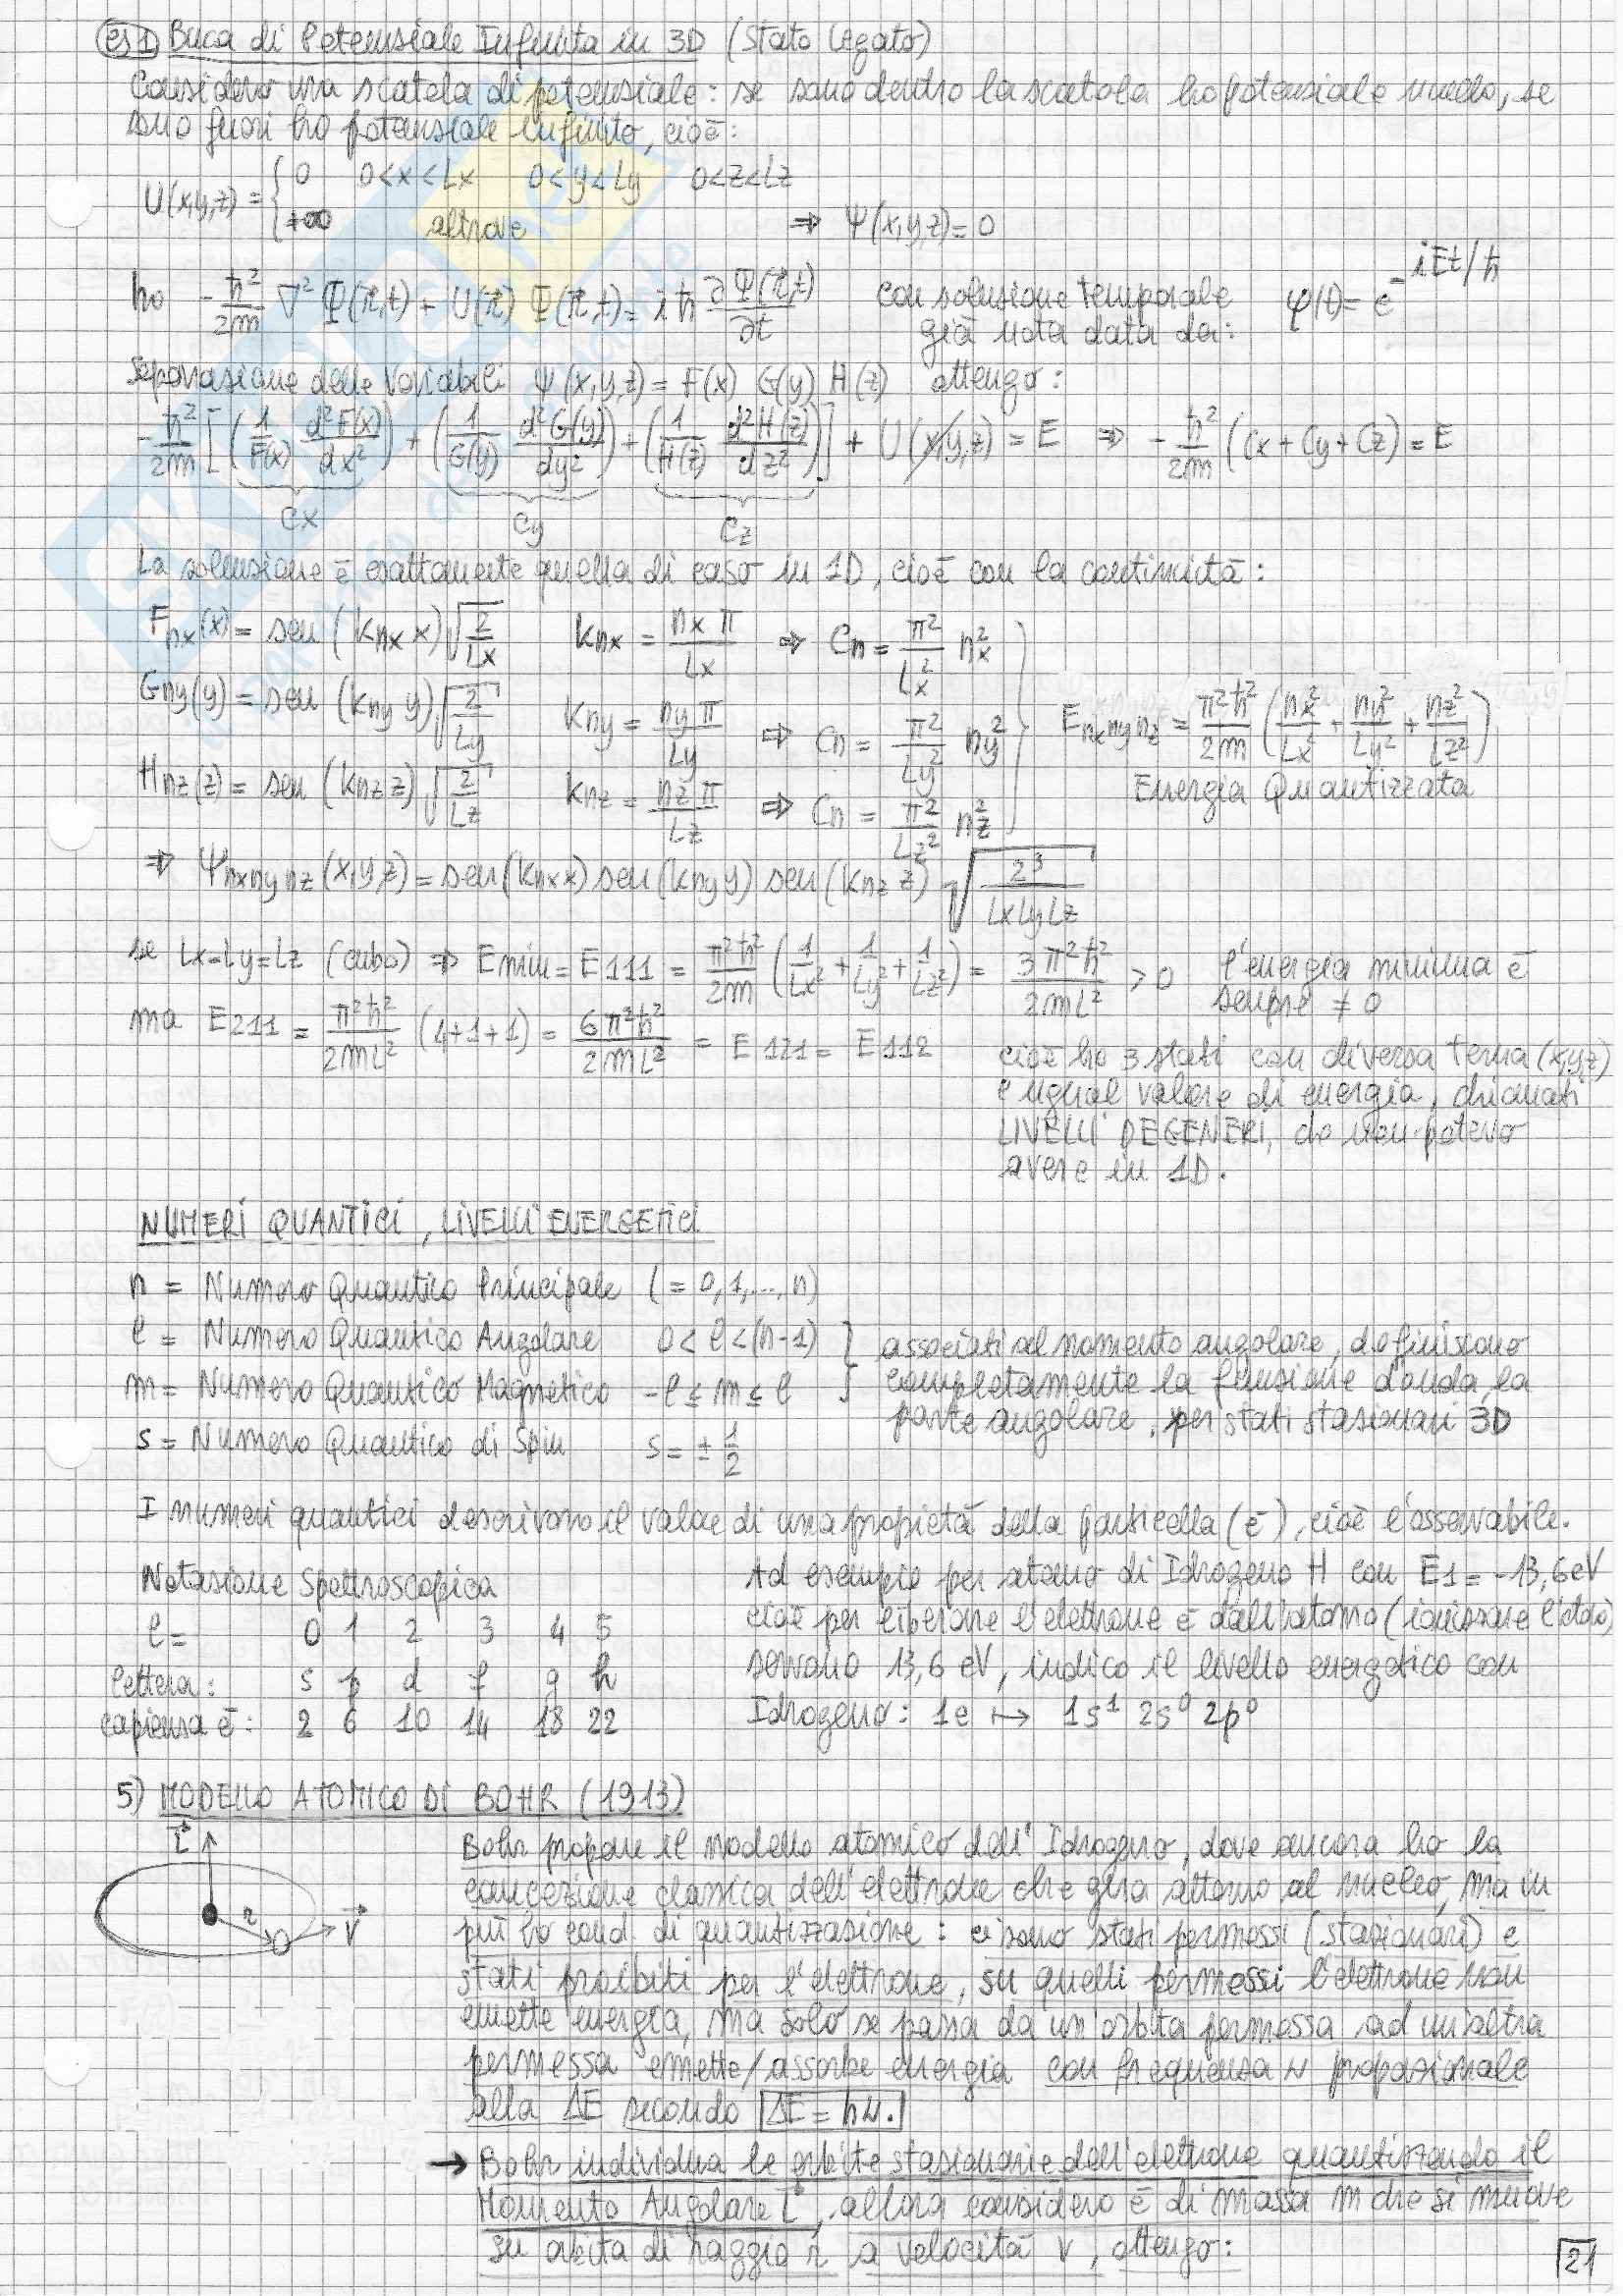 es 1) Buca di Potenziale Infinita in 3D (Stato Legato)
Considero una scatola di potenziale: se sono dentro la scatola ho potenziale nullo, se
sono fuori ho potenziale infinito, cioè:
U(x,y,z) = { 0 0<x<Lx 0<y<Ly 0<z<Lz
+∞ altrove ⇒ Ψ(x,y,z)=0
ho -ħ²/2m ∇² Ψ(r,t) + U(r) Ψ(r,t) = iħ ∂Ψ(r,t)/∂t con soluzione temporale già nota data da: φ(t) = e^(-iEt/ħ)
Separazione delle Variabili Ψ(x,y,z) = F(x) G(y) H(z) ottengo:
-ħ²/2m [(1/F(x) d²F(x)/dx²) + (1/G(y) d²G(y)/dy²) + (1/H(z) d²H(z)/dz²)] + U(x,y,z) = E ⇒ -ħ²/2m (Cx + Cy + Cz) = E
Cx Cy Cz
La soluzione è esattamente quella di caso in 1D, cioè con la continuità:
Fnx(x) = sen(knx x) √(2/Lx) knx = nxπ/Lx ⇒ Cn = π²/Lx² nx²
Gny(y) = sen(kny y) √(2/Ly) kny = nyπ/Ly ⇒ Cn = π²/Ly² ny²
Enxnynz = π²ħ²/2m (nx²/Lx² + ny²/Ly² + nz²/Lz²)
Hnz(z) = sen(knz z) √(2/Lz) knz = nzπ/Lz ⇒ Cn = π²/Lz² nz²
Energia Quantizzata
⇒ Ψnxnynz(x,y,z) = sen(knx x) sen(kny y) sen(knz z) √(2³/LxLyLz)
se Lx=Ly=Lz (cubo) ⇒ Emin = E111 = π²ħ²/2m (1/Lx² + 1/Ly² + 1/Lz²) = 3π²ħ²/2mL² > 0 l'energia minima è sempre ≠ 0
ma E211 = π²ħ²/2mL² (4+1+1) = 6π²ħ²/2mL² = E121 = E112
cioè ho 3 stati con diversa terna (x,y,z)
e ugual valore di energia, chiamati
LIVELLI DEGENERI, che non potevo
avere in 1D.
NUMERI QUANTICI, LIVELLI ENERGETICI
n = Numero Quantico Principale (= 0,1,...,n)
l = Numero Quantico Angolare 0 < l < (n-1)
m = Numero Quantico Magnetico -l ≤ m ≤ l
associati al momento angolare, definiscono
completamente la funzione d'onda, la
parte angolare, per stati stazionari 3D
s = Numero Quantico di Spin s = ± 1/2
I numeri quantici descrivono il valore di una proprietà della particella (e⁻), cioè l'osservabile.
Notazione Spettroscopica
l = 0 1 2 3 4 5
lettera: s p d f g h
capienza e⁻: 2 6 10 14 18 22
Ad esempio per atomo di Idrogeno H con E1 = -13,6 eV
cioè per liberare l'elettrone e⁻ dall'atomo (ionizzare l'atomo)
servono 13,6 eV, indico il livello energetico con
Idrogeno: 1e ↦ 1s¹ 2s⁰ 2p⁰
5) MODELLO ATOMICO DI BOHR (1913)
L
r
v
Bohr propone il modello atomico dell'Idrogeno, dove ancora ho la
concezione classica dell'elettrone che gira attorno al nucleo, ma in
più ho cond. di quantizzazione: ci sono stati permessi (stazionari) e
stati proibiti per l'elettrone, su quelli permessi l'elettrone non
emette energia, ma solo se passa da un'orbita permessa ad un'altra
permessa emette/assorbe energia con frequenza ν proporzionale
alla ΔE secondo ΔE = hν.
→ Bohr individua le orbite stazionarie dell'elettrone quantizzando il
Momento Angolare L, allora considero e⁻ di massa m che si muove
su orbita di raggio r a velocità v, ottengo:
21